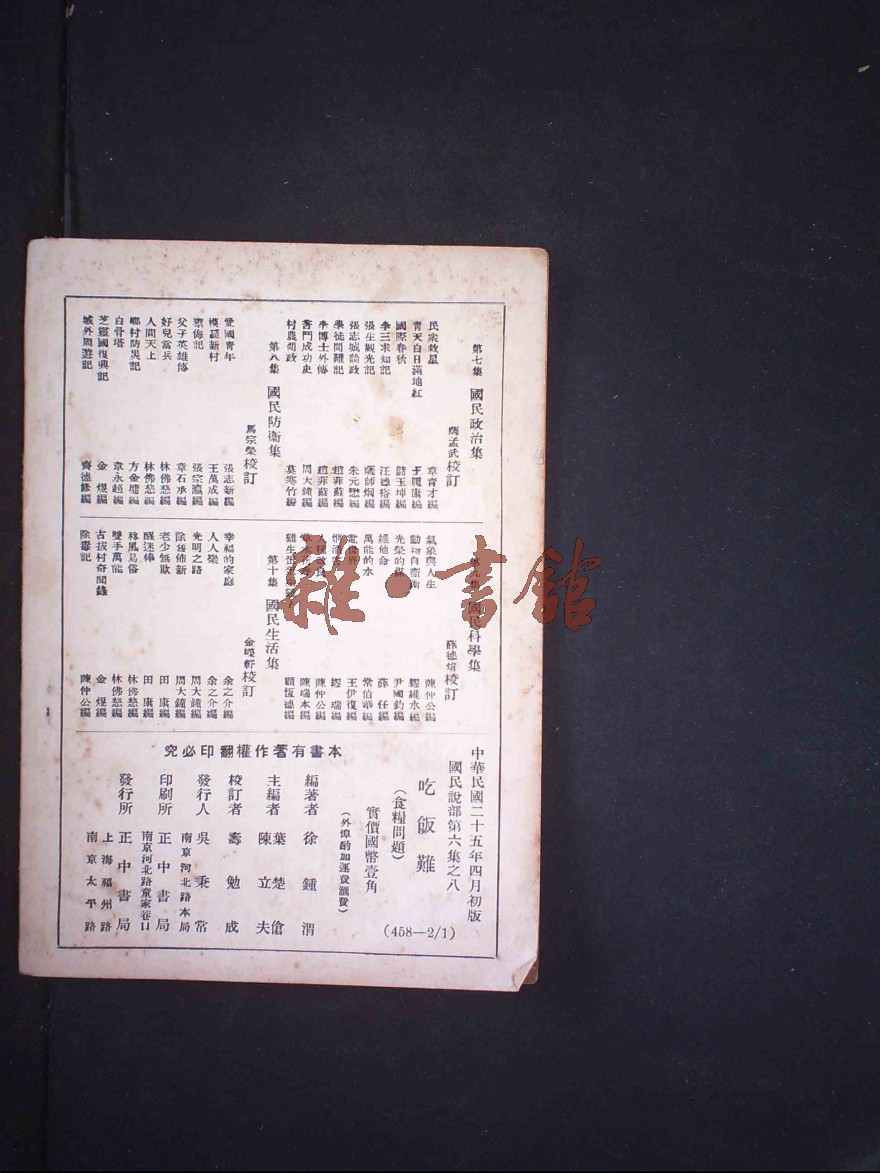 第七集 國民政治集
薩孟武校訂
民衆救星 章育才編
青天白日滿地紅 王履康編
國際春秋 儲玉坤編
李三求知記 汪德裕編
張生觀光記 薩師炯編
張志城論政 朱元懋編
學徒問難記 趙菲蘇編
李博士外傳 趙菲蘇編
奮鬥成功史 周大鐘編
村農問政 莫寒竹編
第八集 國民防衛集
馬宗榮校訂
愛國青年 張志新編
模範新村 王萬成編
禦侮記 張宗瀛編
父子英雄傳 章石承編
好兒當兵 林佛慈編
人間天上 林佛慈編
鄉村防災記 方金墉編
白骨塔 章永超編
芝靈國復興記 金煜編
城外周遊記 齊德修編
國民科學集
薛德焴校訂
氣象與人生 陳仲公編
動物自衛術 繆維水編
光榮的 尹國鈞編
維他命 薛任編
萬能的水 常伯華編
電世界 王伊復編
繆瑞編
陳仲公編
陳端本編
顧恆德編
第十集 國民生活集
金嶸軒校訂
幸福的家庭 余之介編
人人樂 余之介編
光明之路 周大鐘編
除舊佈新 周大鐘編
老少無欺 田康編
醒迷棒 田康編
移風易俗 林佛慈編
雙手萬能 林佛慈編
古拔村奇聞錄 金煜編
除毒記 陳仲公編
中華民國二十五年四月初版
國民說部第六集之八
(458—2/1)
吃飯難
(食糧問題)
實價國幣壹角
(外埠酌加運費滙費)
編著者 徐鍾渭
主編者 葉楚傖 陳立夫
校訂者 壽勉成
發行人 吳秉常
南京河北路本局
印刷所 正中書局
南京河北路童家巷口
發行所 正中書局
上海福州路
南京太平路
本書有著作權翻印必究
雜·書館